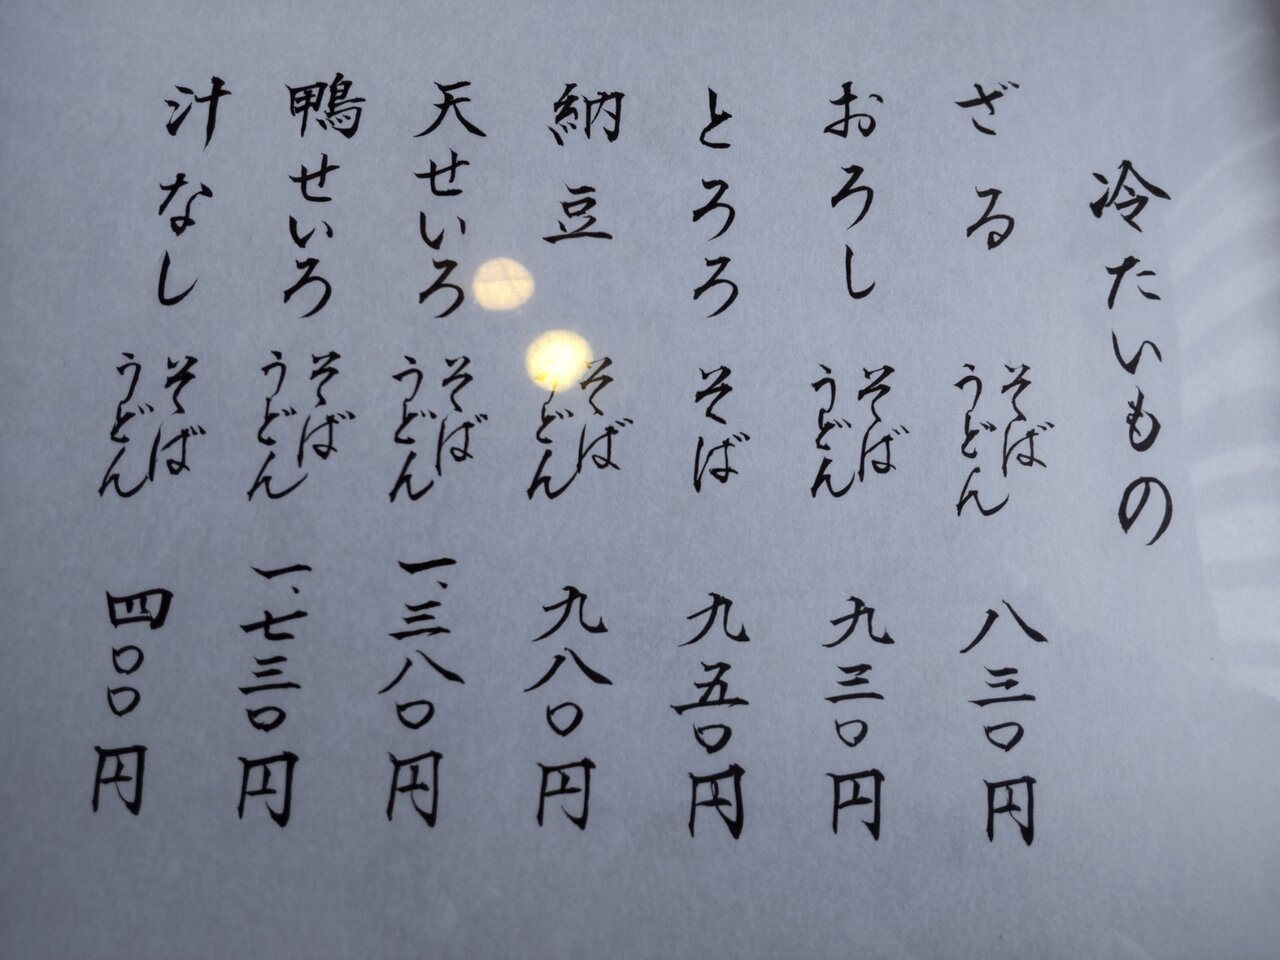 冷たいもの
ざる そば うどん 八三〇円
おろし そば うどん 九三〇円
とろろ そば 九五〇円
納豆 そば うどん 九八〇円
天せいろ そば うどん 一、三八〇円
鴨せいろ そば うどん 一、七三〇円
汁なし そば うどん 四〇〇円